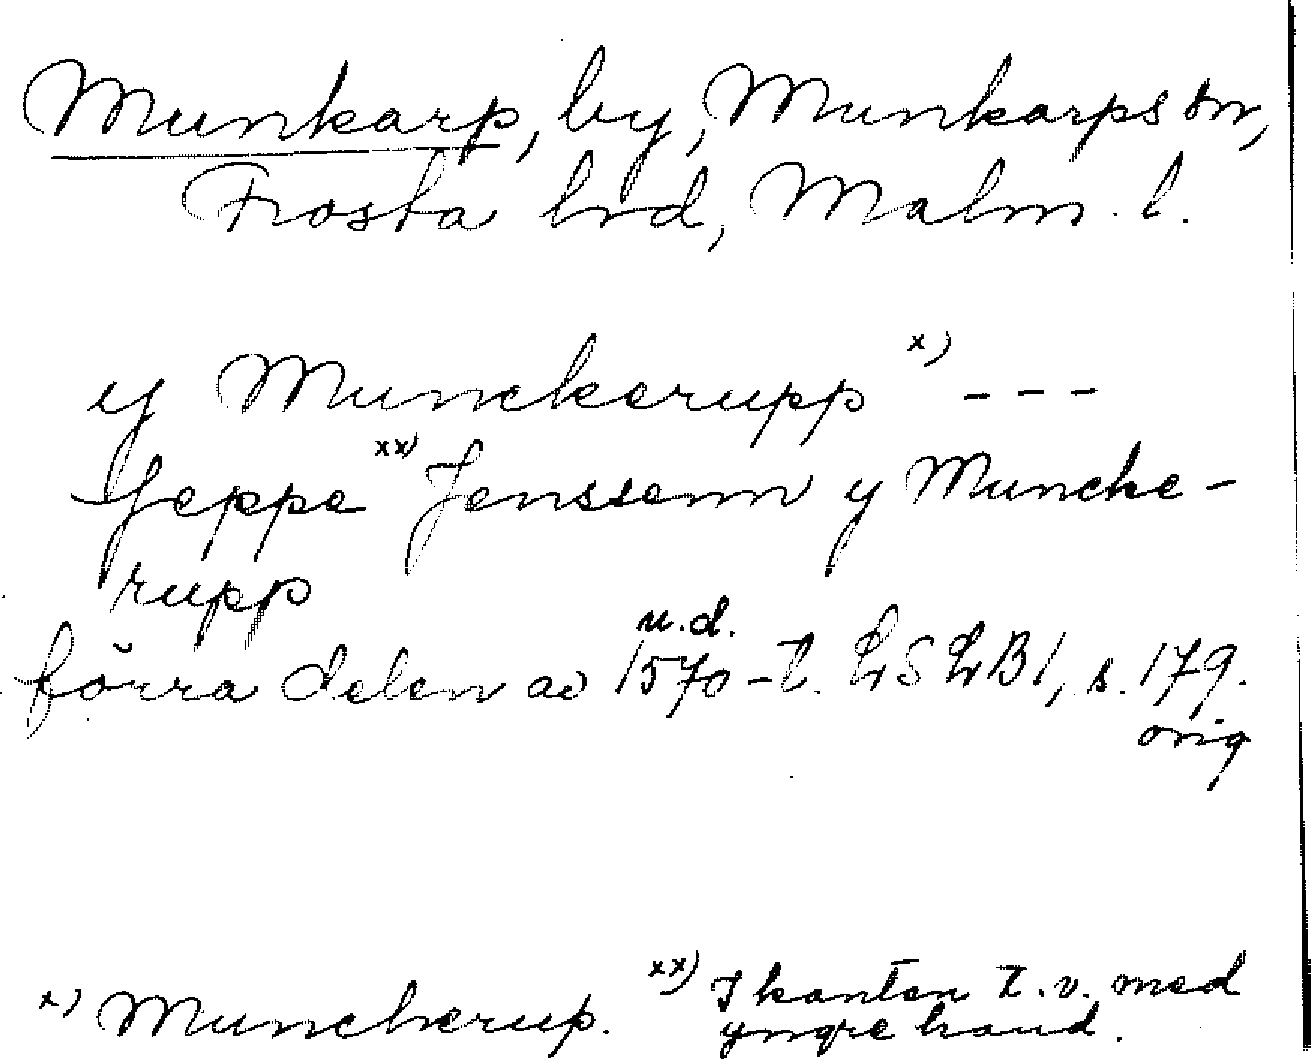 Munkarp, by, Munkarps sn,
Frosta hrd, Malm. l.
y Munckerupp x) ---
Jeppe xx) Jenssenn y Muncke-
rupp
u.d.
förra delen av 1570-t. LSLB1, s. 179.
orig
x) Munckerup.
xx) I kanten t.v. med
yngre hand.